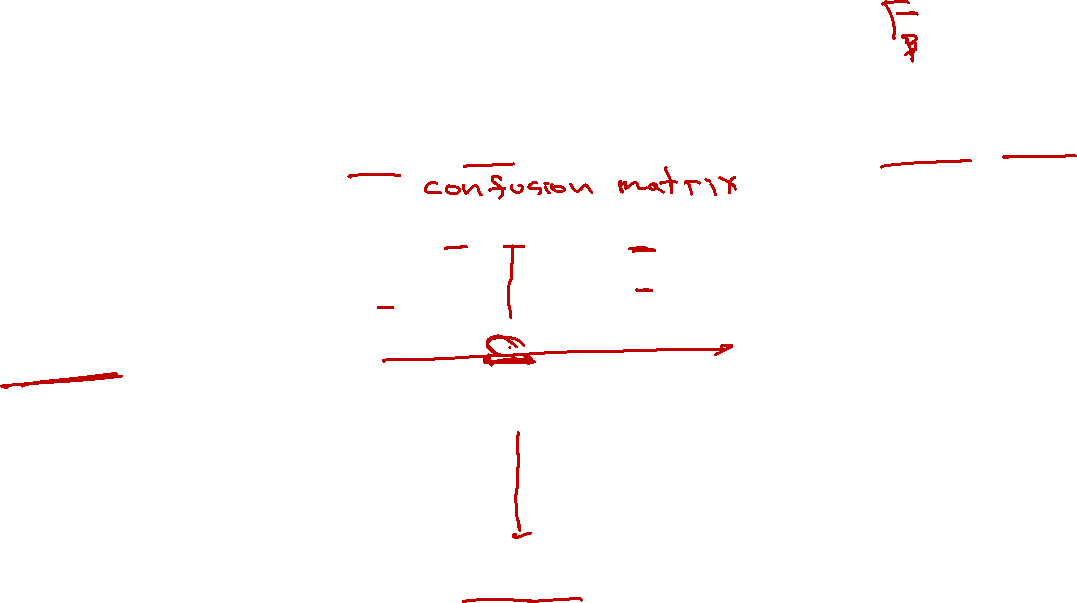 confusion matrix